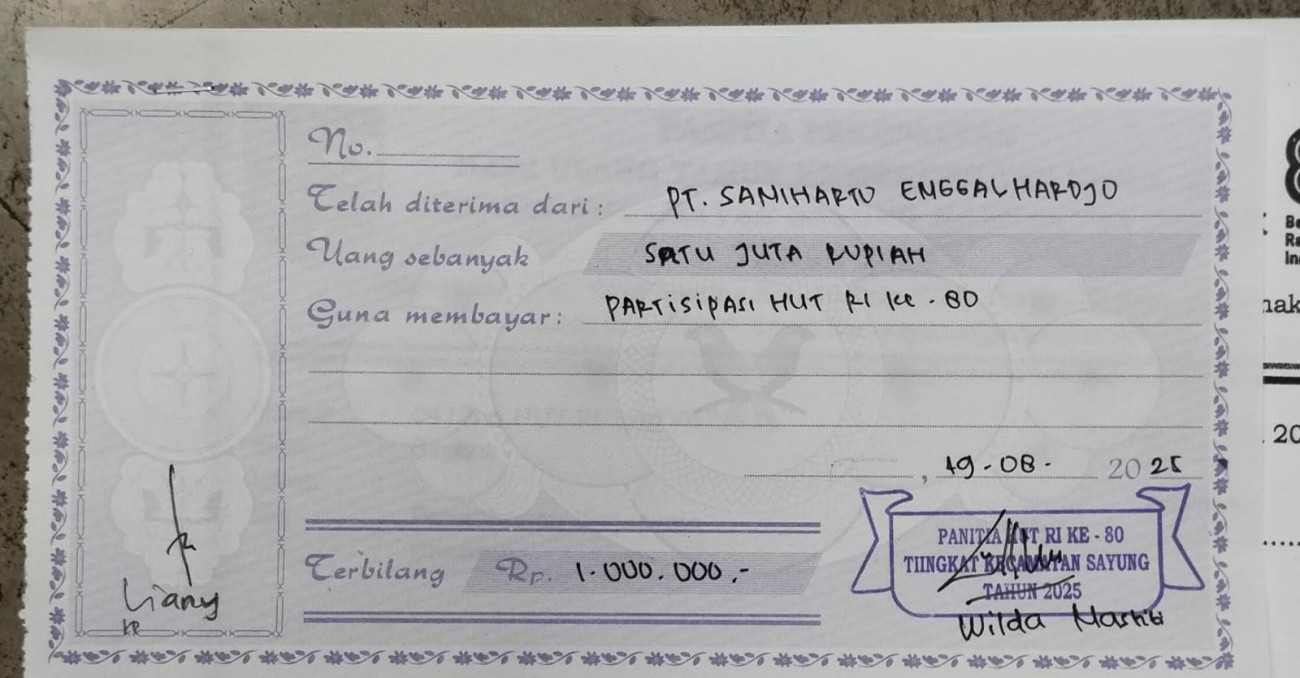 No.
Telah diterima dari : PT. SAMIHARTO ENGGALHARDJO
Uang sebanyak SATU JUTA RUPIAH
Guna membayar : PARTISIPASI HUT RI Ke - 80
, 19 - 08 - 2025
Terbilang Rp. 1.000.000,-
PANITIA HUT RI KE - 80
TIINGKAT KECAMATAN SAYUNG
TAHUN 2025
Wilda
Liany
20